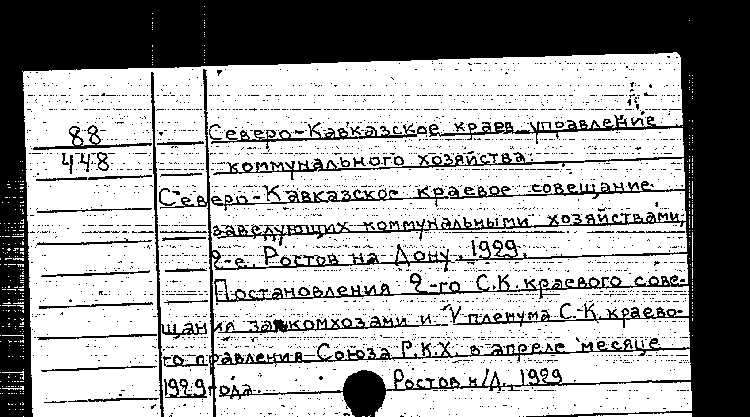 88
448
Северо-Кавказское краев. управление
коммунального хозяйства.
Северо-Кавказское краевое совещание
заведующих коммунальными хозяйствами,
2-е. Ростов на Дону. 1929.
Постановления 2-го С.К. краевого сове-
щания завкомхозами и V пленума С.-К. краево-
го правления Союза Р.К.Х. в апреле месяце
1929 года. Ростов н/Д., 1929